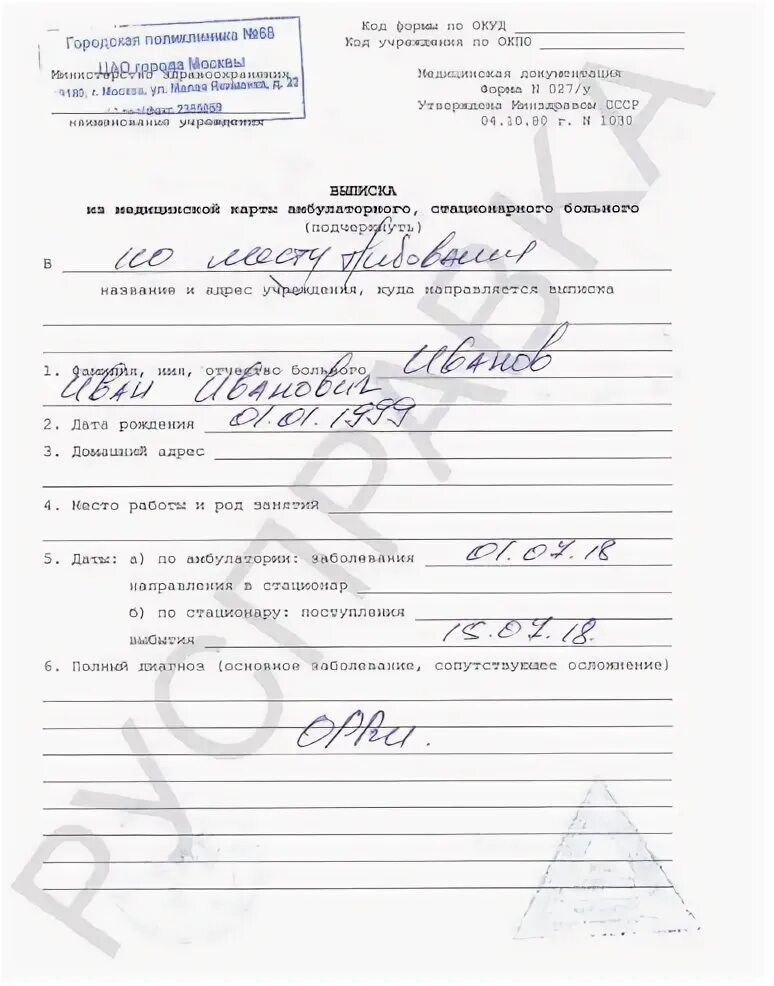 Код формы по ОКУД
Код учреждения по ОКПО
Городская поликлиника №68
ЦАО города Москвы
Министерство здравоохранения
г. Москва, ул. Малая Якиманка, д. 22
наименование учреждения
Медицинская документация
Форма N 027/у
Утверждена Минздравом СССР
04.10.80 г. N 1030
ВЫПИСКА
из медицинской карты амбулаторного, стационарного больного
(подчеркнуть)
В по месту требования
название и адрес учреждения, куда направляется выписка
1. Фамилия, имя, отчество больного Иванов
Иван Иванович
2. Дата рождения 01.01.1999
3. Домашний адрес
4. Место работы и род занятий
5. Даты: а) по амбулатории: заболевания 01.07.18
направления в стационар
б) по стационару: поступления
выбытия 15.07.18.
6. Полный диагноз (основное заболевание, сопутствующее осложнение)
ОРВИ.
РУСПРАВКА